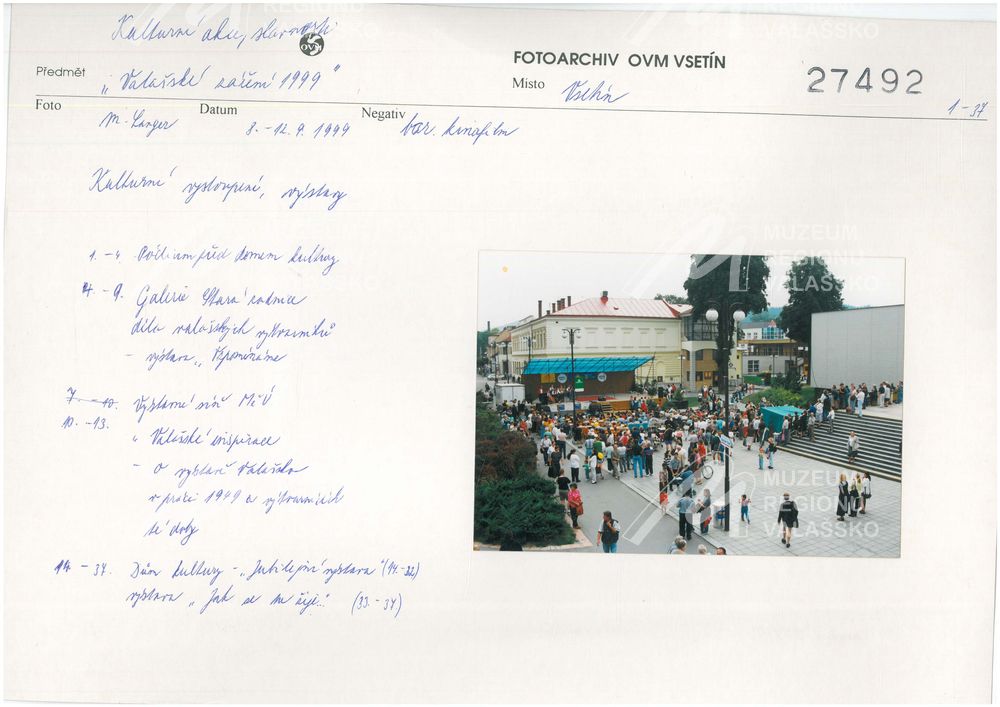 Kulturní akce, slavnosti
OVM
FOTOARCHIV OVM VSETÍN
27492
Předmět
„Valašské záření 1999"
Místo
Vsetín
1-37
Foto
M. Langer
Datum
8.-12.9.1999
Negativ
bar. kinofilm
Kulturní vystoupení, výstavy
1.-4. Pódium před domem kultury
4.-9. Galerie Stará radnice
díla valašských výtvarníků
- výstava „Vzpomínáme
7.-10. Výstavní síň MěÚ
10.-13.
„Valašské inspirace
- o výstavě Valašsko
v práci 1949 a výtvarnících
té doby
14.-37. Dům kultury - „Jubilejní výstava" (14.-32)
výstava „Jak se mu žije" (33.-37)
MUZEUM
REGIONU
VALAŠSKO
MUZEUM
REGIONU
VALAŠSKO
REGIONU
VALAŠSKO
REGIONU
VALAŠSKO